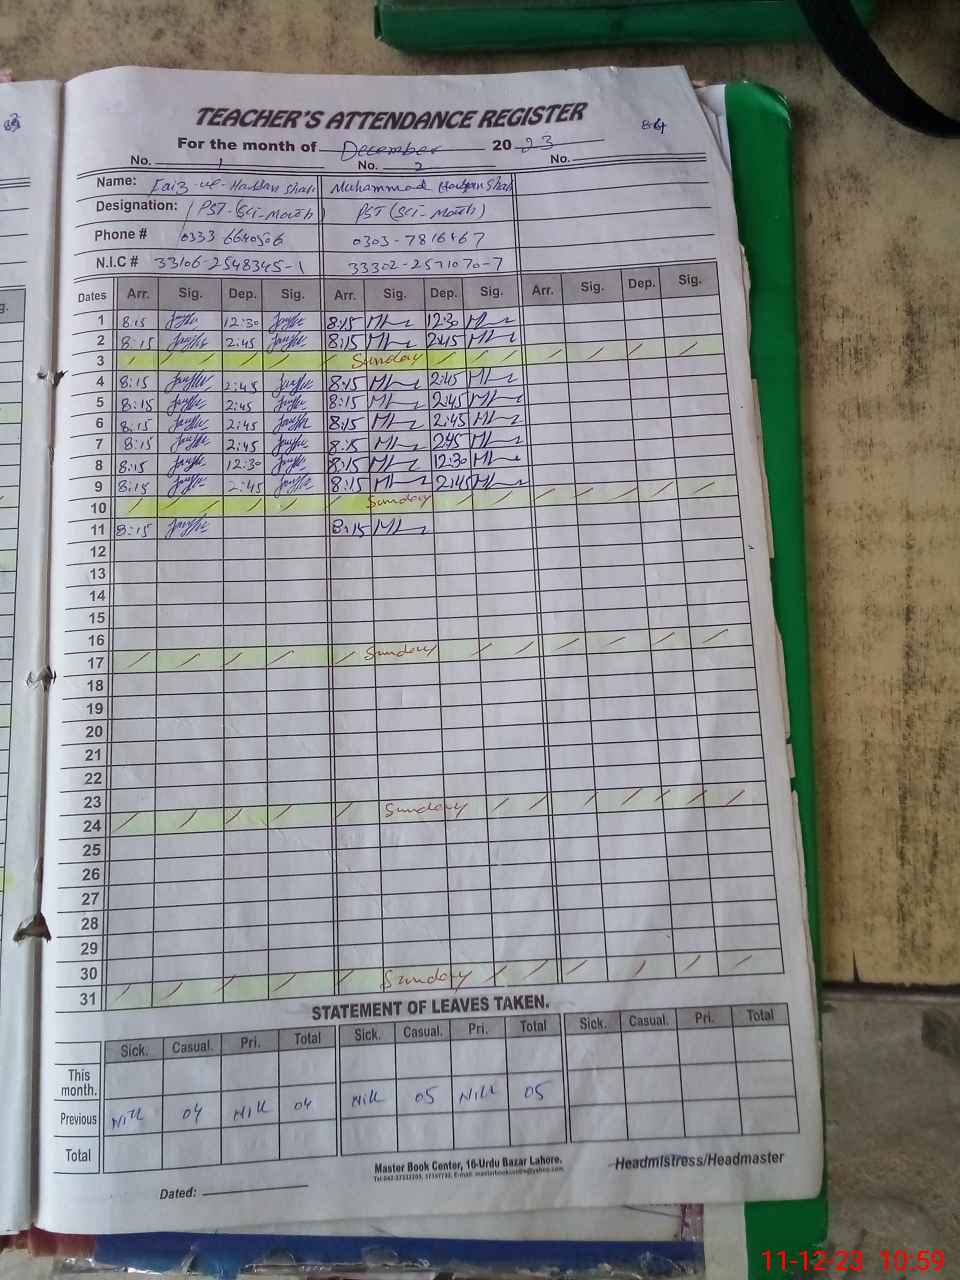 TEACHER'S ATTENDANCE REGISTER
84
For the month of December 2023
No. 1 No. 2 No.
Name: Faiz-ul- Shah Muhammad Shah
Designation: PST-(Sci-Math) PST (Sci-Math)
Phone # 0333 6640506 0303-7816467
N.I.C # 33106-2548345-1 33302-2571070-7
Dates Arr. Sig. Dep. Sig. Arr. Sig. Dep. Sig. Arr. Sig. Dep. Sig.
1 8:15 12:30 8:15 12:30
2 8:15 2:45 8:15 2:45
3 Sunday
4 8:15 2:45 8:15 2:45
5 8:15 2:45 8:15 2:45
6 8:15 2:45 8:15 2:45
7 8:15 2:45 8:15 2:45
8 8:15 12:30 8:15 12:30
9 8:15 2:45 8:15 2:45
10 Sunday
11 8:15 8:15
12
13
14
15
16
17 Sunday
18
19
20
21
22
23
24 Sunday
25
26
27
28
29
30
31 Sunday
STATEMENT OF LEAVES TAKEN.
Sick. Casual. Pri. Total Sick. Casual. Pri. Total Sick. Casual. Pri. Total
This month.
Previous Nill 04 Nill 04 Nill 05 Nill 05
Total
Master Book Center, 16-Urdu Bazar Lahore.
Headmistress/Headmaster
Dated:
11-12-23 10:59